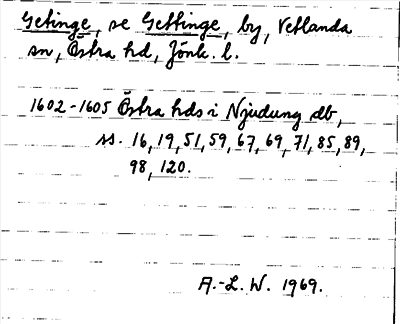 Getinge, se Gettinge, by, Vetlanda
sn, Östra hd, Jönk. l.
1602-1605 Östra hds i Njudung db,
ss. 16, 19, 51, 59, 67, 69, 71, 85, 89,
98, 120.
A.-L. W. 1969.